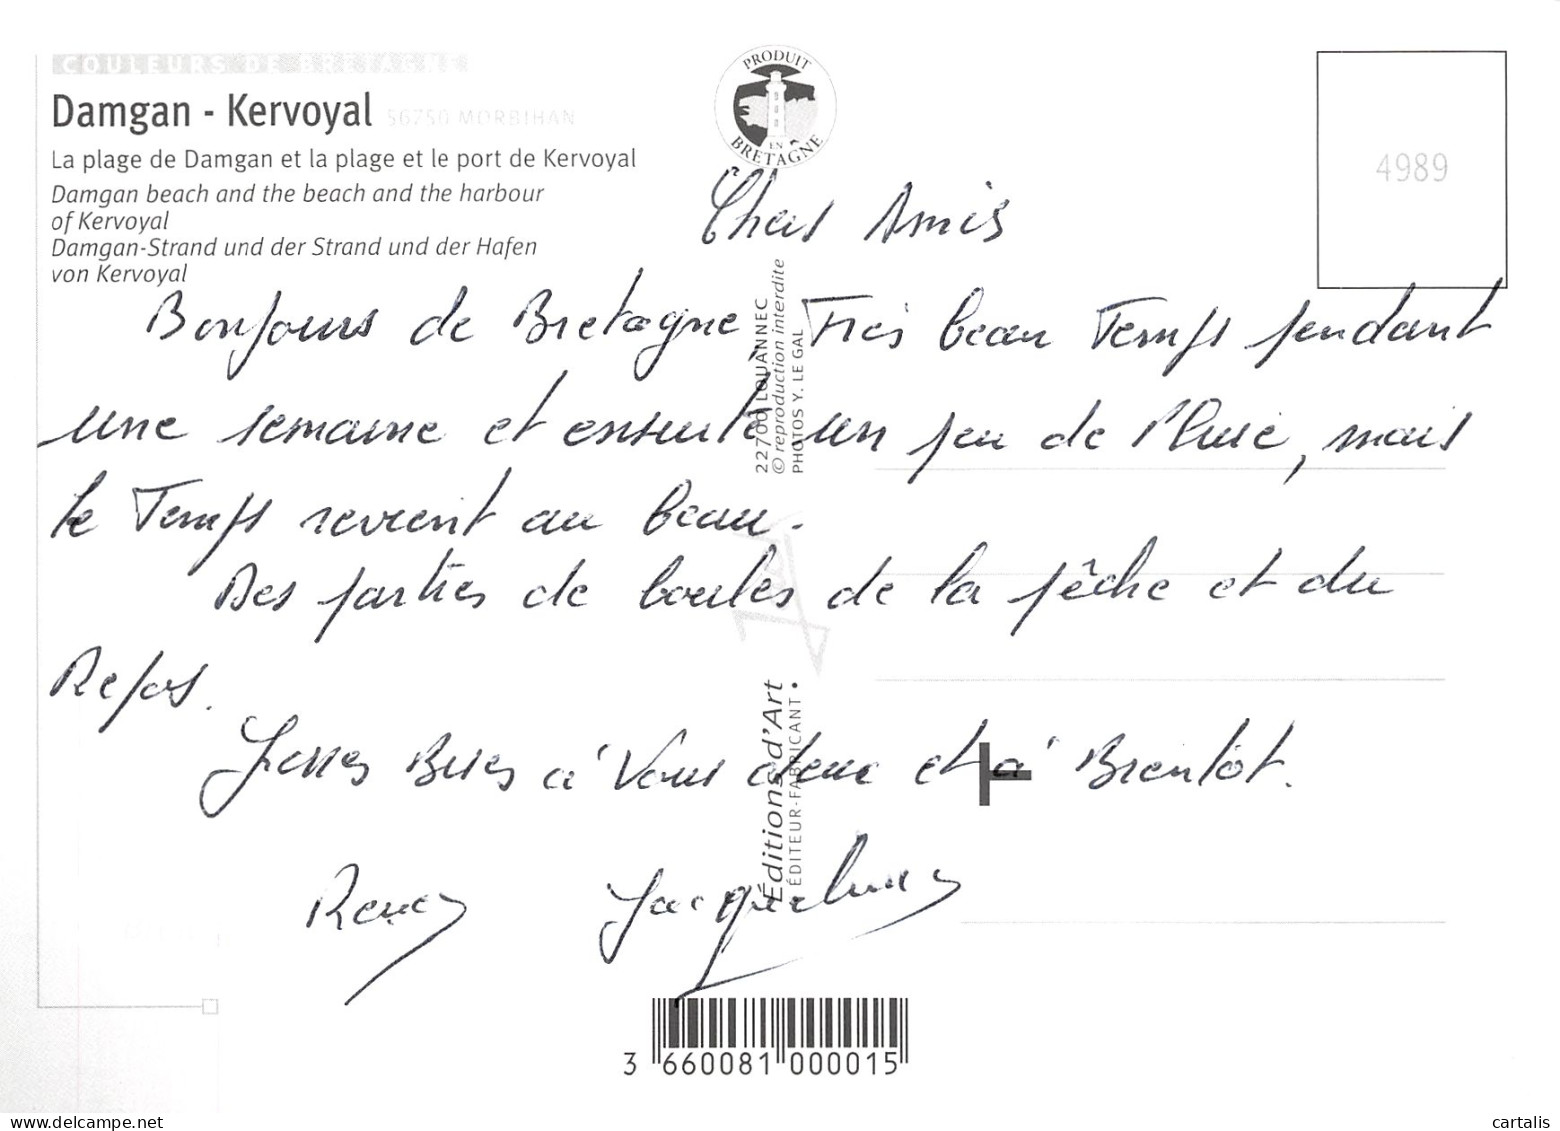 COULEURS DE BRETAGNE
Damgan - Kervoyal 56750 MORBIHAN
La plage de Damgan et la plage et le port de Kervoyal
Damgan beach and the beach and the harbour
of Kervoyal
Damgan-Strand und der Strand und der Hafen
von Kervoyal
PRODUIT
EN
BRETAGNE
4989
Chers Amis
Bonjours de Bretagne Très beau Temps pendant
une semaine et ensuite un peu de Pluie, mais
le Temps revient au beau.
Des parties de boules de la pêche et du
Repos.
Grosses Bises à Vous deux et à Bientôt.
René Jacqueline
22700 LOUANNEC
© reproduction interdite
PHOTOS Y. LE GAL
Jos
Éditions d'Art
ÉDITEUR-FABRICANT
3 660081 000015
www.delcampe.net
cartalis